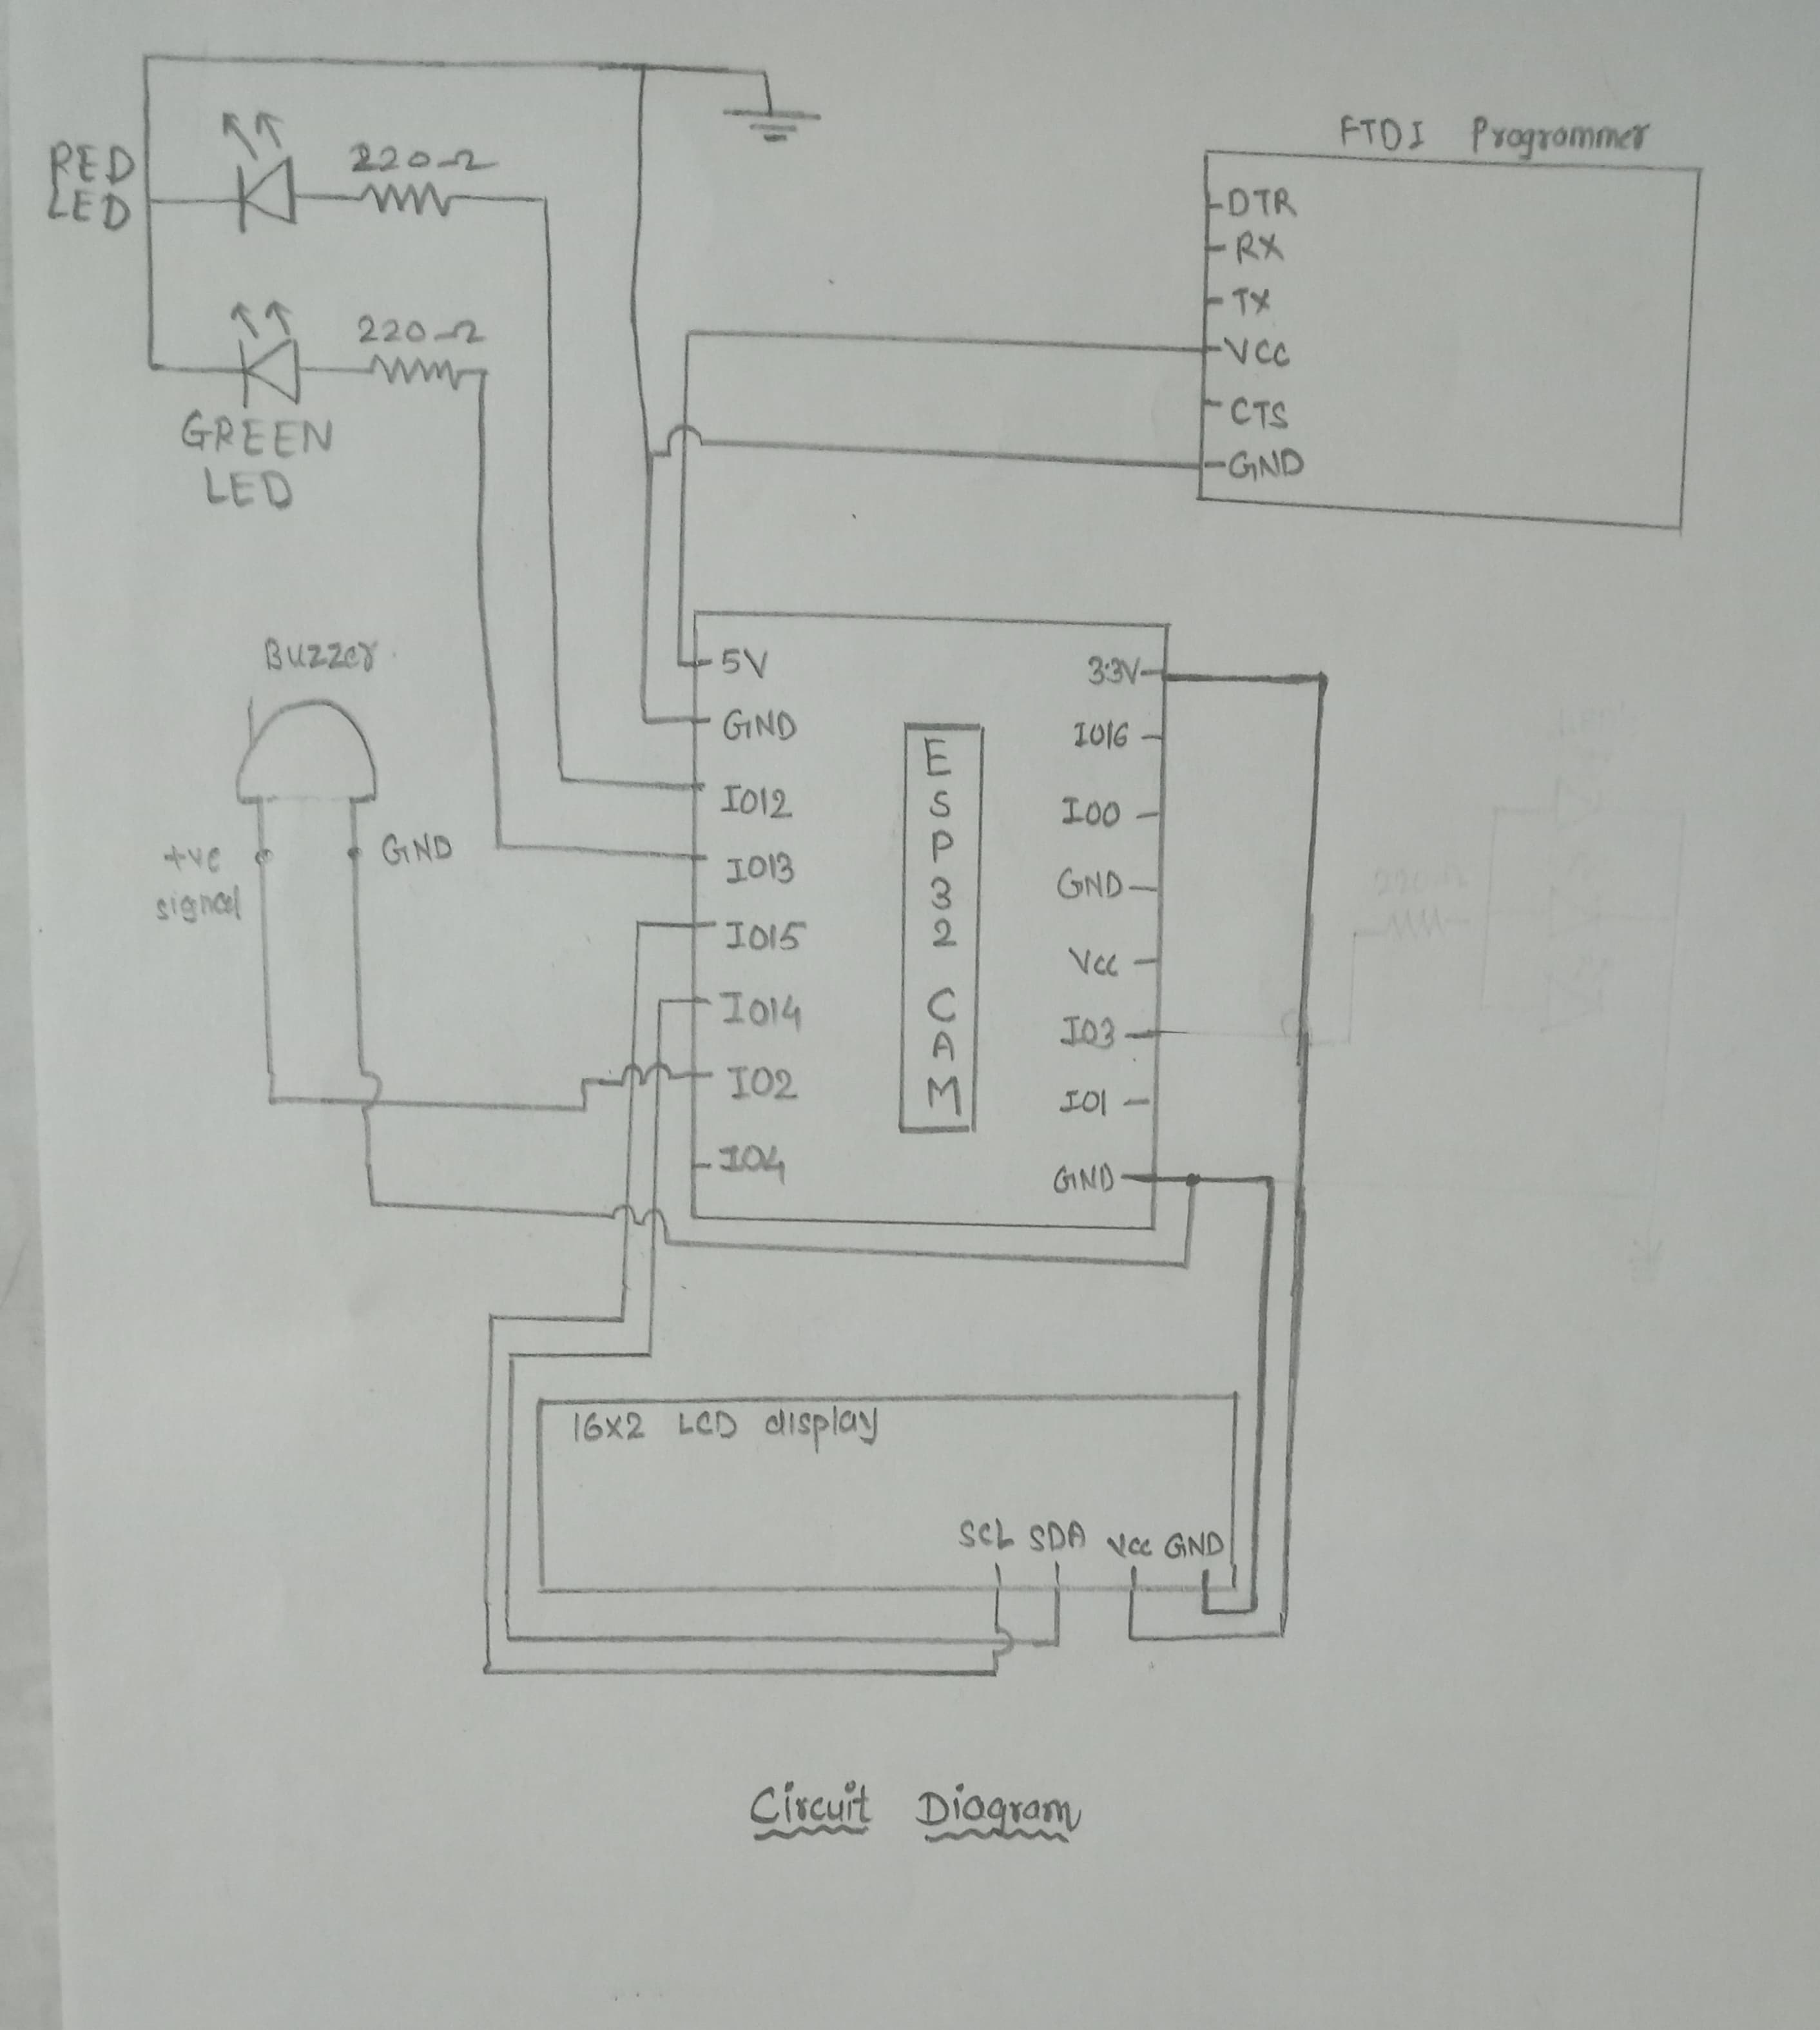 RED
LED
220Ω
220Ω
GREEN
LED
FTDI Programmer
DTR
RX
TX
VCC
CTS
GND
Buzzer
+ve
signal
GND
5V
GND
IO12
IO13
IO15
IO14
IO2
IO4
ESP32 CAM
3.3V
IO16
IO0
GND
Vcc
IO3
IO1
GND
220Ω
16x2 LCD display
SCL SDA Vcc GND
Circuit Diagram